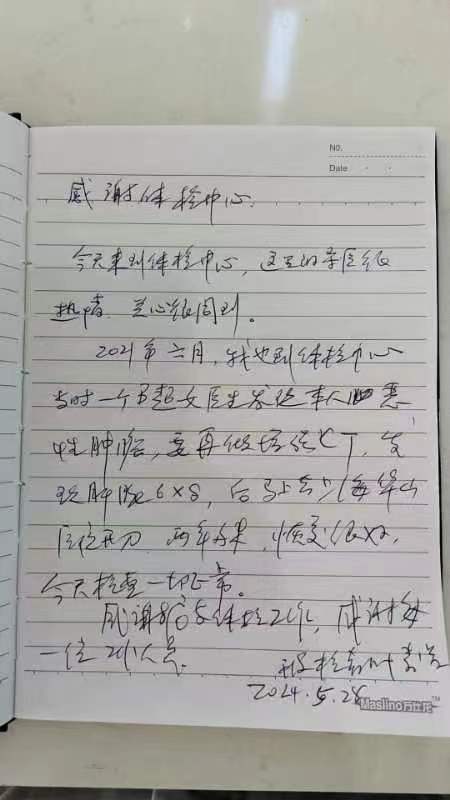 No.
Date
感谢体检中心:
今天来到体检中心, 这里的 很
热情, 关心很周到。
2021年六月, 我也到体检中心
当时一个B超女医生发现本人 恶
性肿瘤, 要再做增强CT, 发
现肿瘤6×8, 后马上去 华山
医院开刀. 两年多来, 恢复很好,
今天检查一切正常。
感谢 体检工作, 感谢每
一位工作人员.
2024.5.28
Maslino
TM